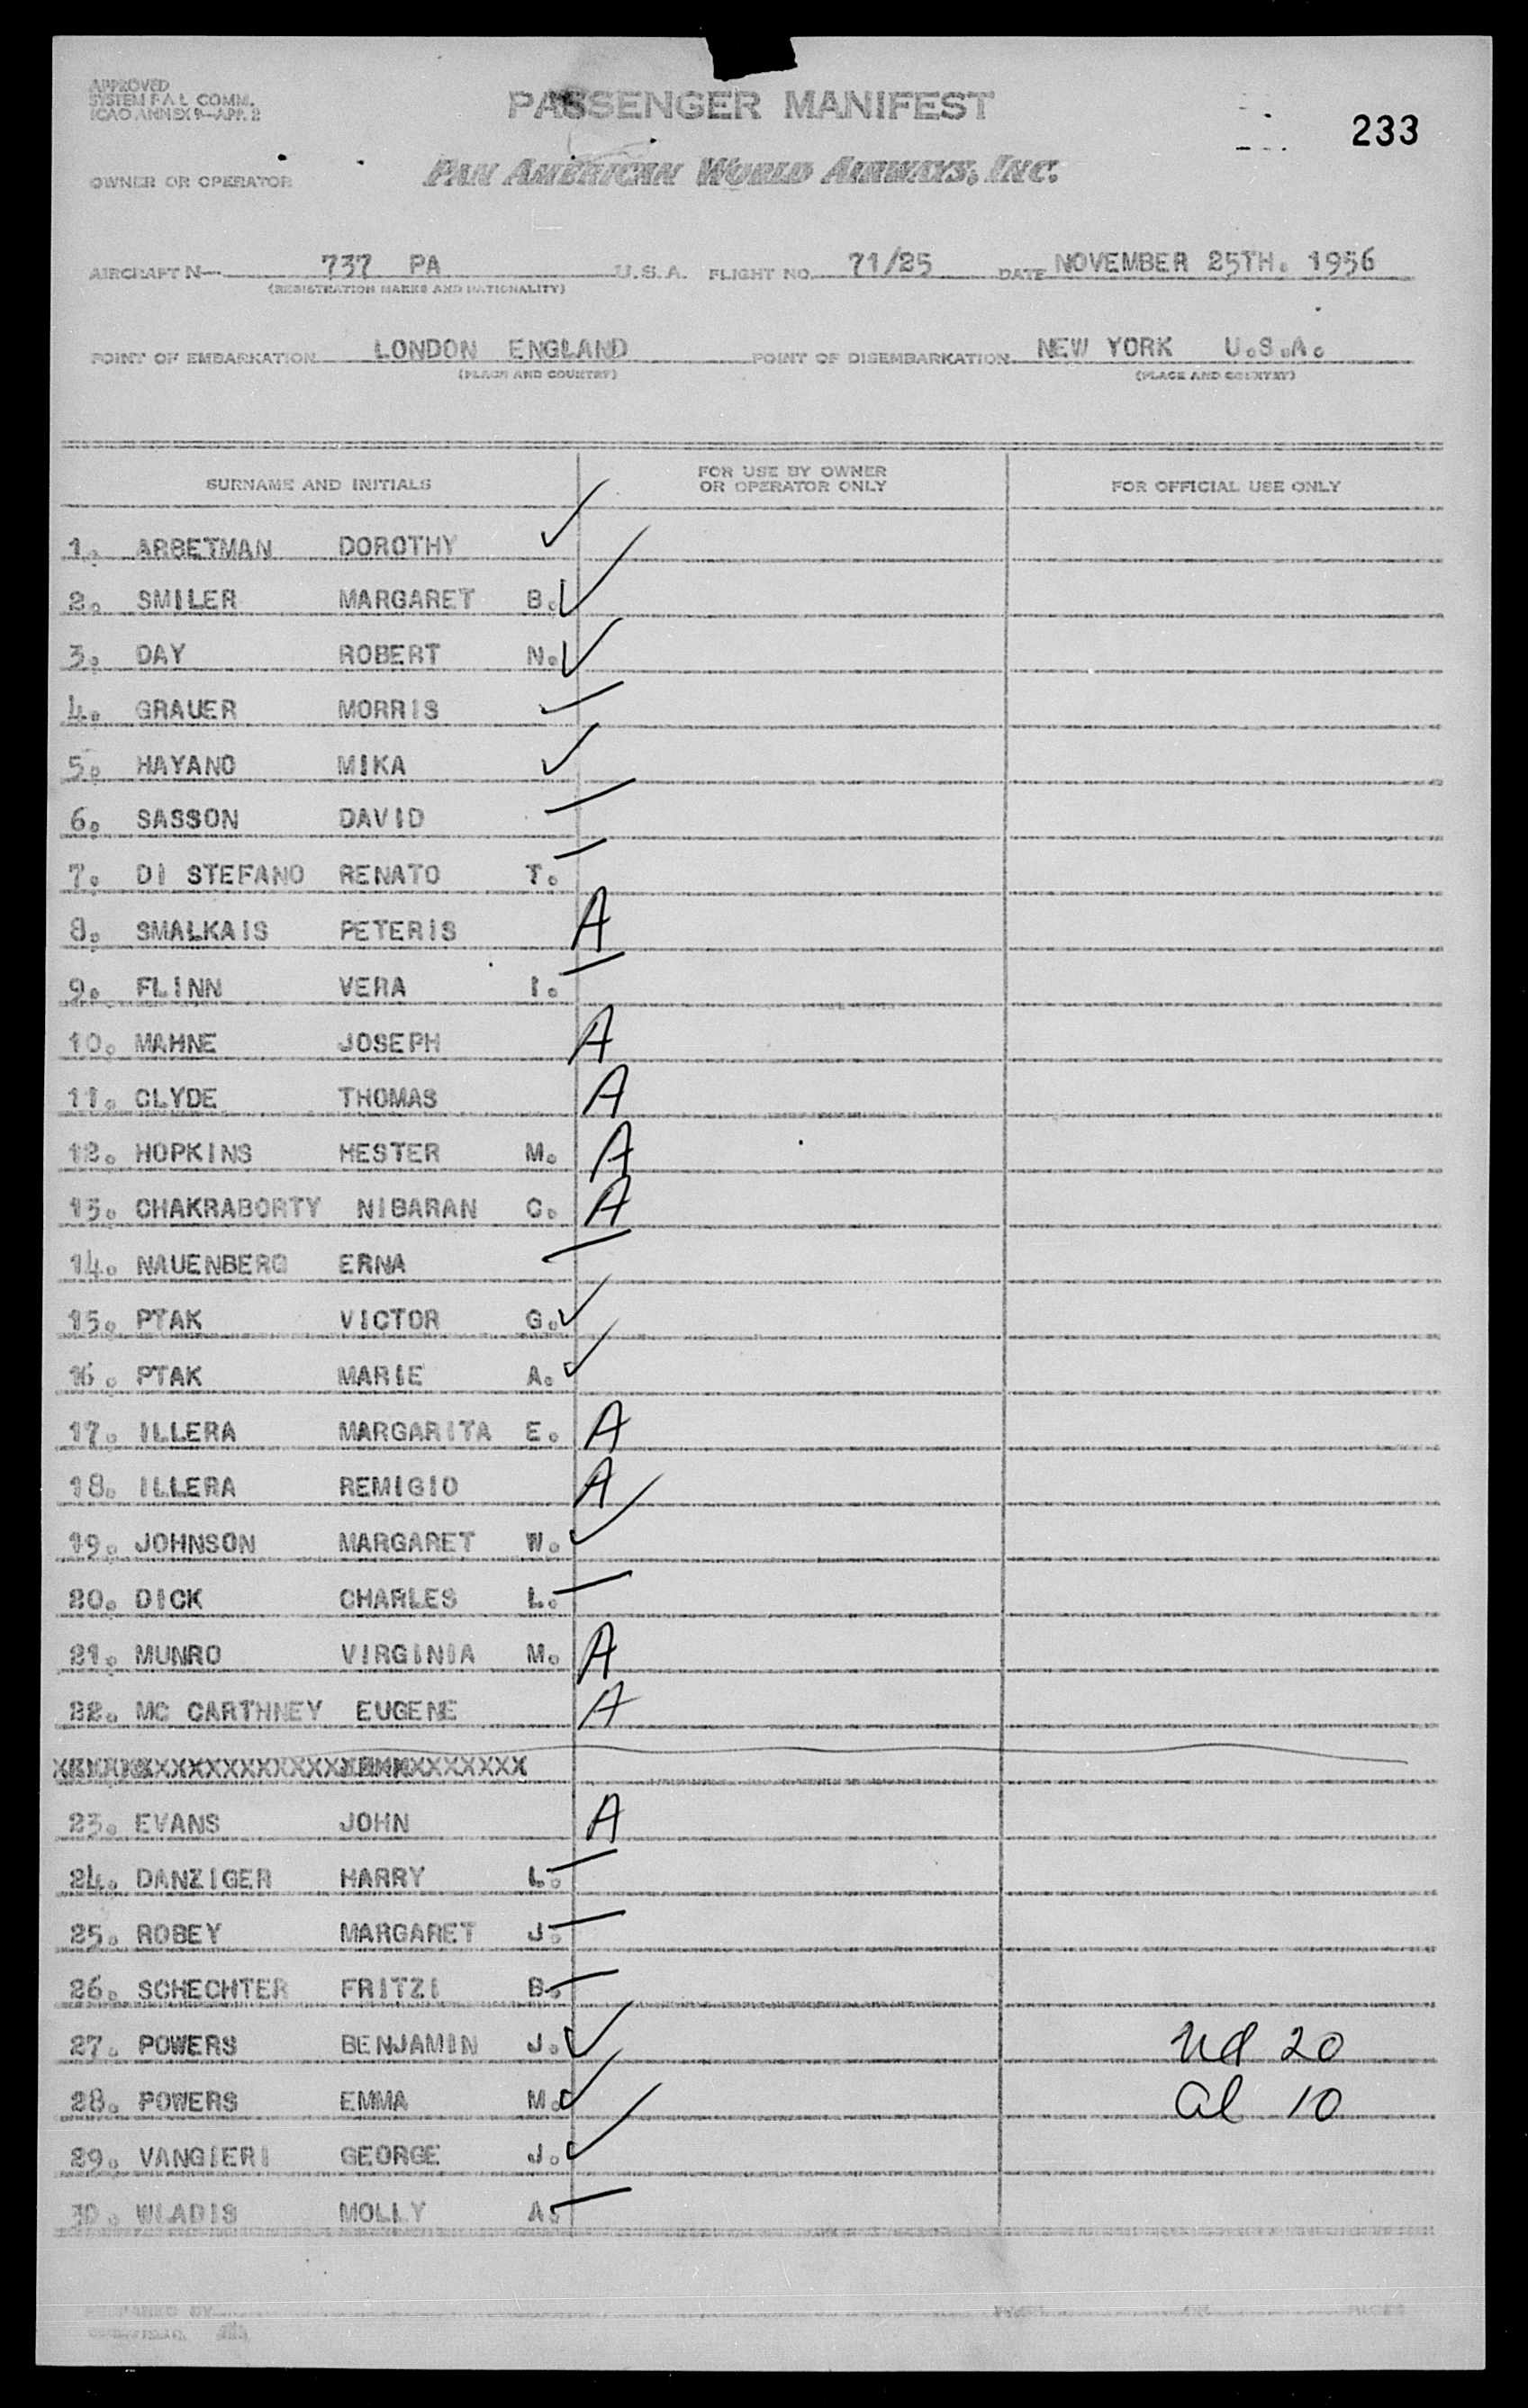 APPROVED
SYSTEM F.A.L. COMM.
ICAO ANNEX 9-APP. 2
PASSENGER MANIFEST
233
OWNER OR OPERATOR
PAN AMERICAN WORLD AIRWAYS, INC.
AIRCRAFT N— 737 PA U.S.A. FLIGHT NO. 71/25 DATE NOVEMBER 25TH. 1956
(REGISTRATION MARKS AND NATIONALITY)
POINT OF EMBARKATION LONDON ENGLAND POINT OF DISEMBARKATION NEW YORK U.S.A.
(PLACE AND COUNTRY) (PLACE AND COUNTRY)
SURNAME AND INITIALS
FOR USE BY OWNER
OR OPERATOR ONLY
FOR OFFICIAL USE ONLY
1. ARBETMAN DOROTHY ✓
2. SMILER MARGARET B. ✓
3. DAY ROBERT N. ✓
4. GRAUER MORRIS ✓
5. HAYANO MIKA ✓
6. SASSON DAVID —
7. DI STEFANO RENATO T. —
8. SMALKAIS PETERIS A
9. FLINN VERA I. —
10. MAHNE JOSEPH A
11. CLYDE THOMAS A
12. HOPKINS HESTER M. A
13. CHAKRABORTY NIBARAN C. A
14. NAUENBERG ERNA —
15. PTAK VICTOR G. ✓
16. PTAK MARIE A. ✓
17. ILLERA MARGARITA E. A
18. ILLERA REMIGIO A
19. JOHNSON MARGARET W. ✓
20. DICK CHARLES L. —
21. MUNRO VIRGINIA M. A
22. MC CARTHNEY EUGENE A
23. EVANS JOHN A
24. DANZIGER HARRY L. —
25. ROBEY MARGARET J. —
26. SCHECHTER FRITZI B. —
27. POWERS BENJAMIN J. ✓ Ud 20
28. POWERS EMMA M. ✓ al 10
29. VANGIERI GEORGE J. ✓
30. WLADIS MOLLY A. —